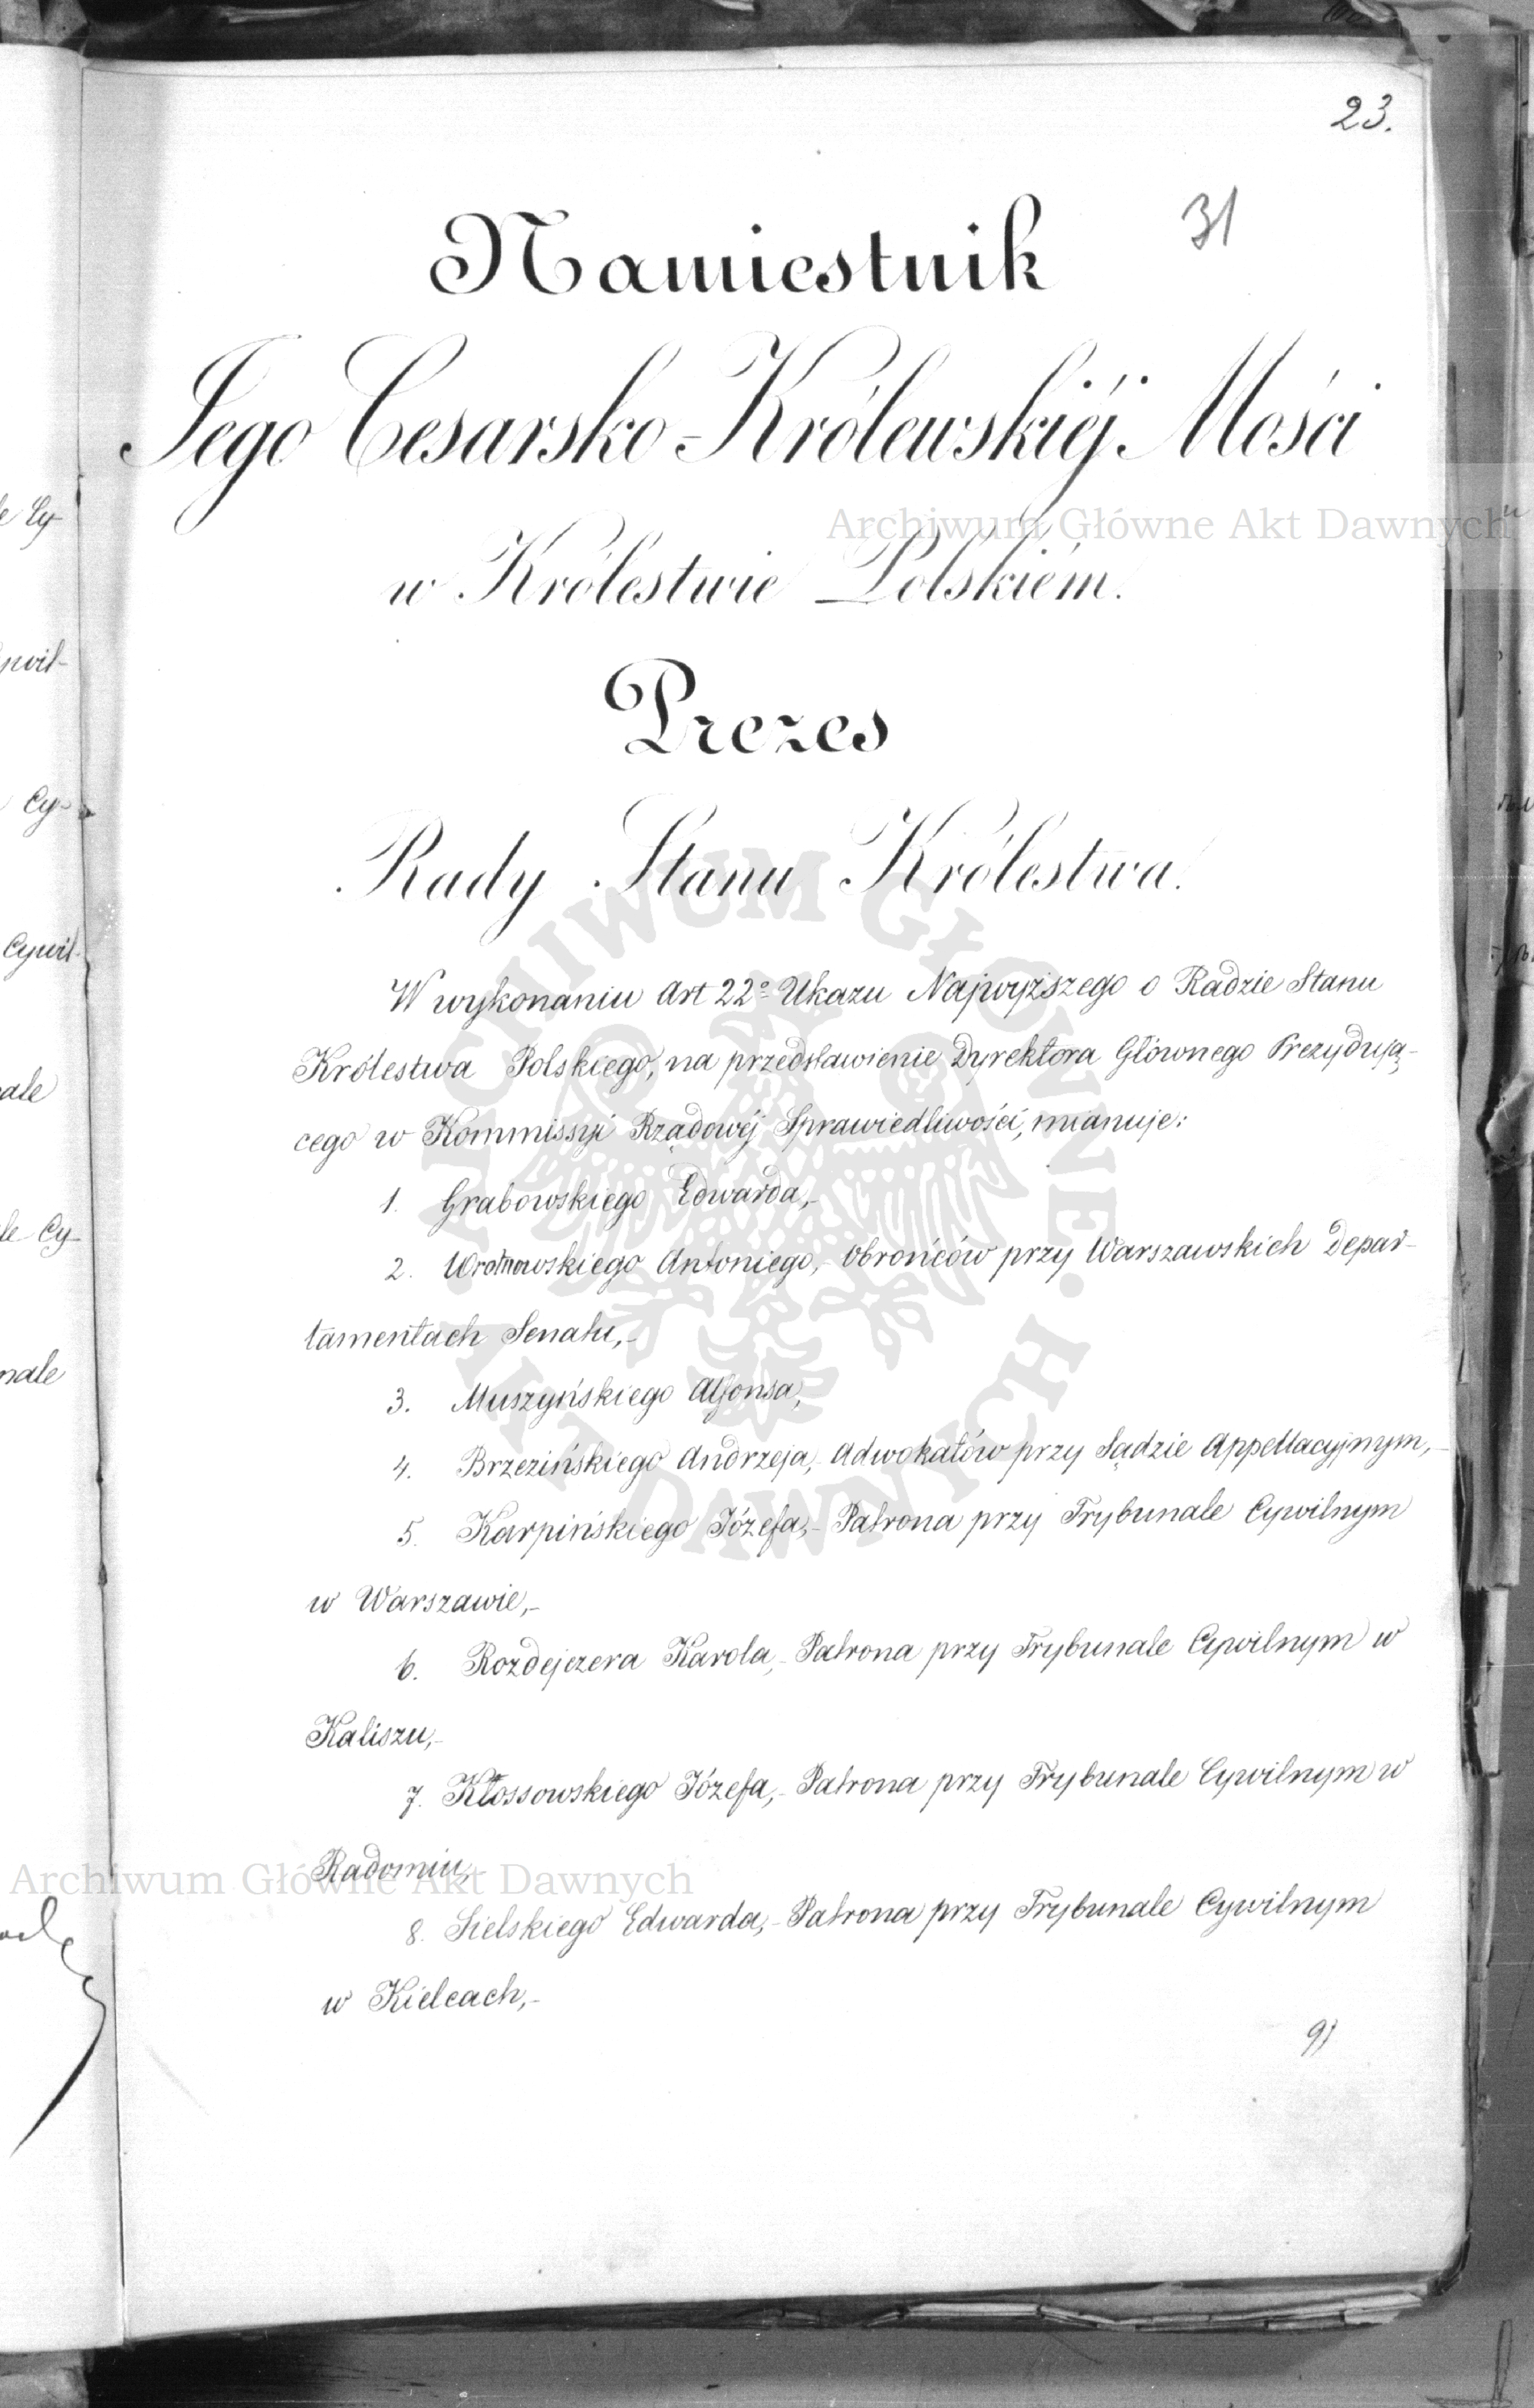 23.
31
Namiestnik
Jego Cesarsko-Królewskiéj Mości
w Królestwie Polskiém.
Prezes
Rady Stanu Królestwa.
W wykonaniu Art 22º Ukazu Najwyższego o Radzie Stanu
Królestwa Polskiego, na przedstawienie Dyrektora Głównego Prezydują-
cego w Kommissyi Rządowéj Sprawiedliwości, mianuje:
1. Grabowskiego Edwarda,-
2. Wrotnowskiego Antoniego,- Obrońców przy Warszawskich Depar-
tamentach Senatu,-
3. Muszyńskiego Alfonsa,
4. Brzezińskiego Andrzeja,- Adwokatów przy Sądzie Appellacyjnym,-
5. Karpińskiego Józefa,- Patrona przy Trybunale Cywilnym
w Warszawie,-
6. Rozdejczera Karola,- Patrona przy Trybunale Cywilnym w
Kaliszu,-
7. Kłossowskiego Józefa,- Patrona przy Trybunale Cywilnym w
Radomiu,-
8. Sielskiego Edwarda,- Patrona przy Trybunale Cywilnym
w Kielcach,-
9)
Archiwum Główne Akt Dawnych
ARCHIWUM GŁÓWNE AKT DAWNYCH
Archiwum Główne Akt Dawnych